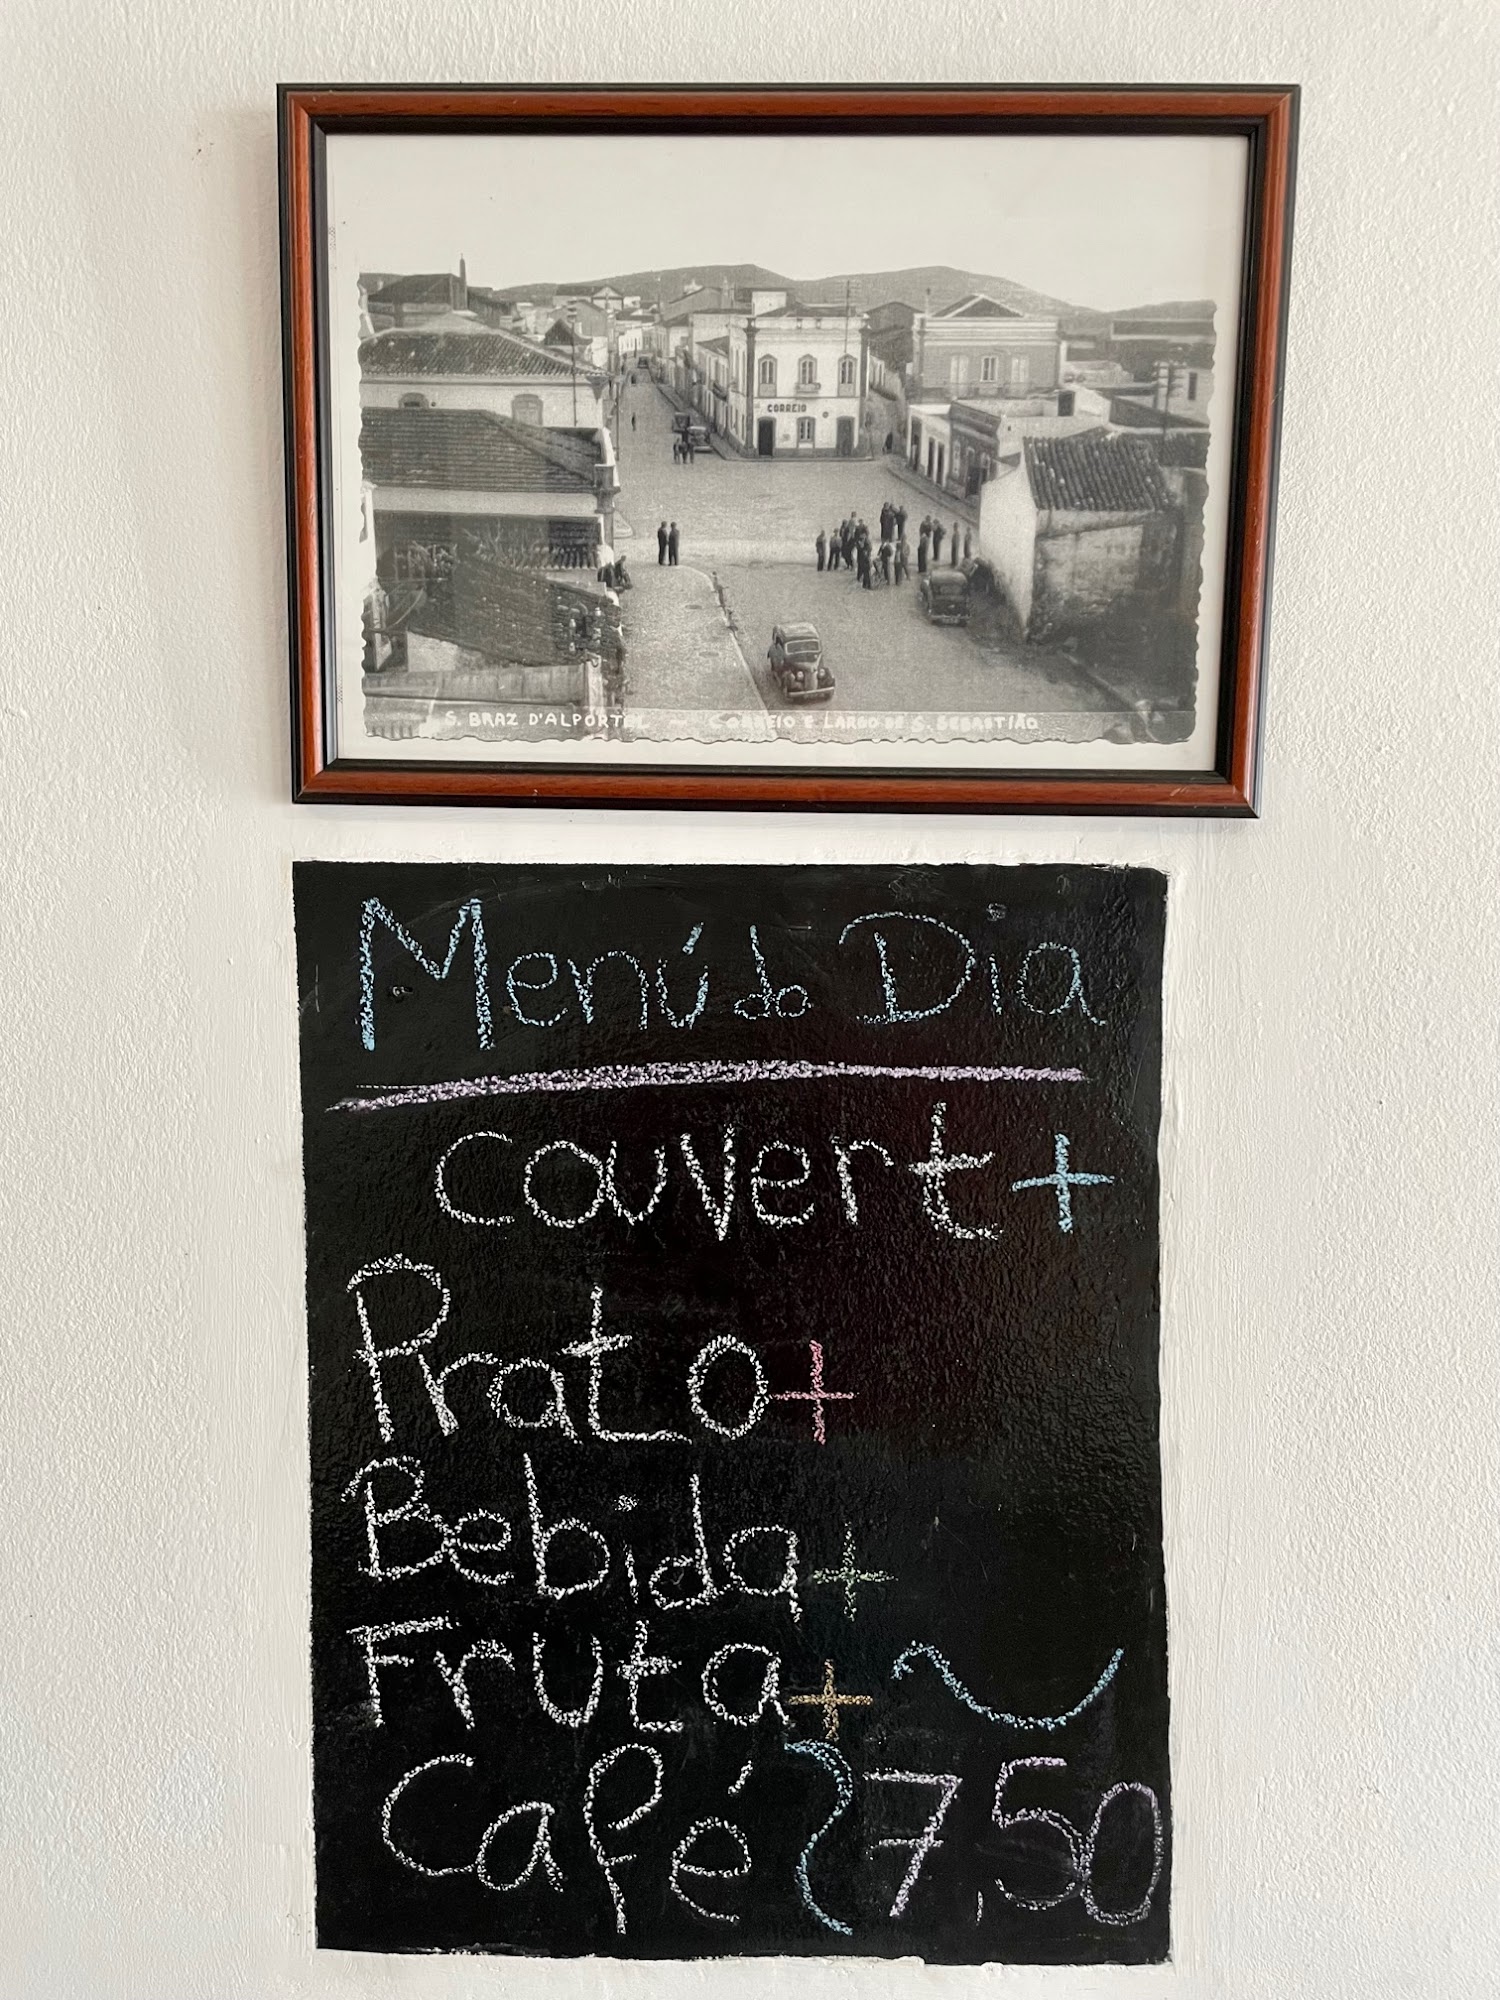 CORREIO
S. BRAZ D'ALPORTEL — CORREIO E LARGO DE S. SEBASTIÃO
Menú do Dia
couvert +
Prato +
Bebida +
Fruta +
Café 7,50